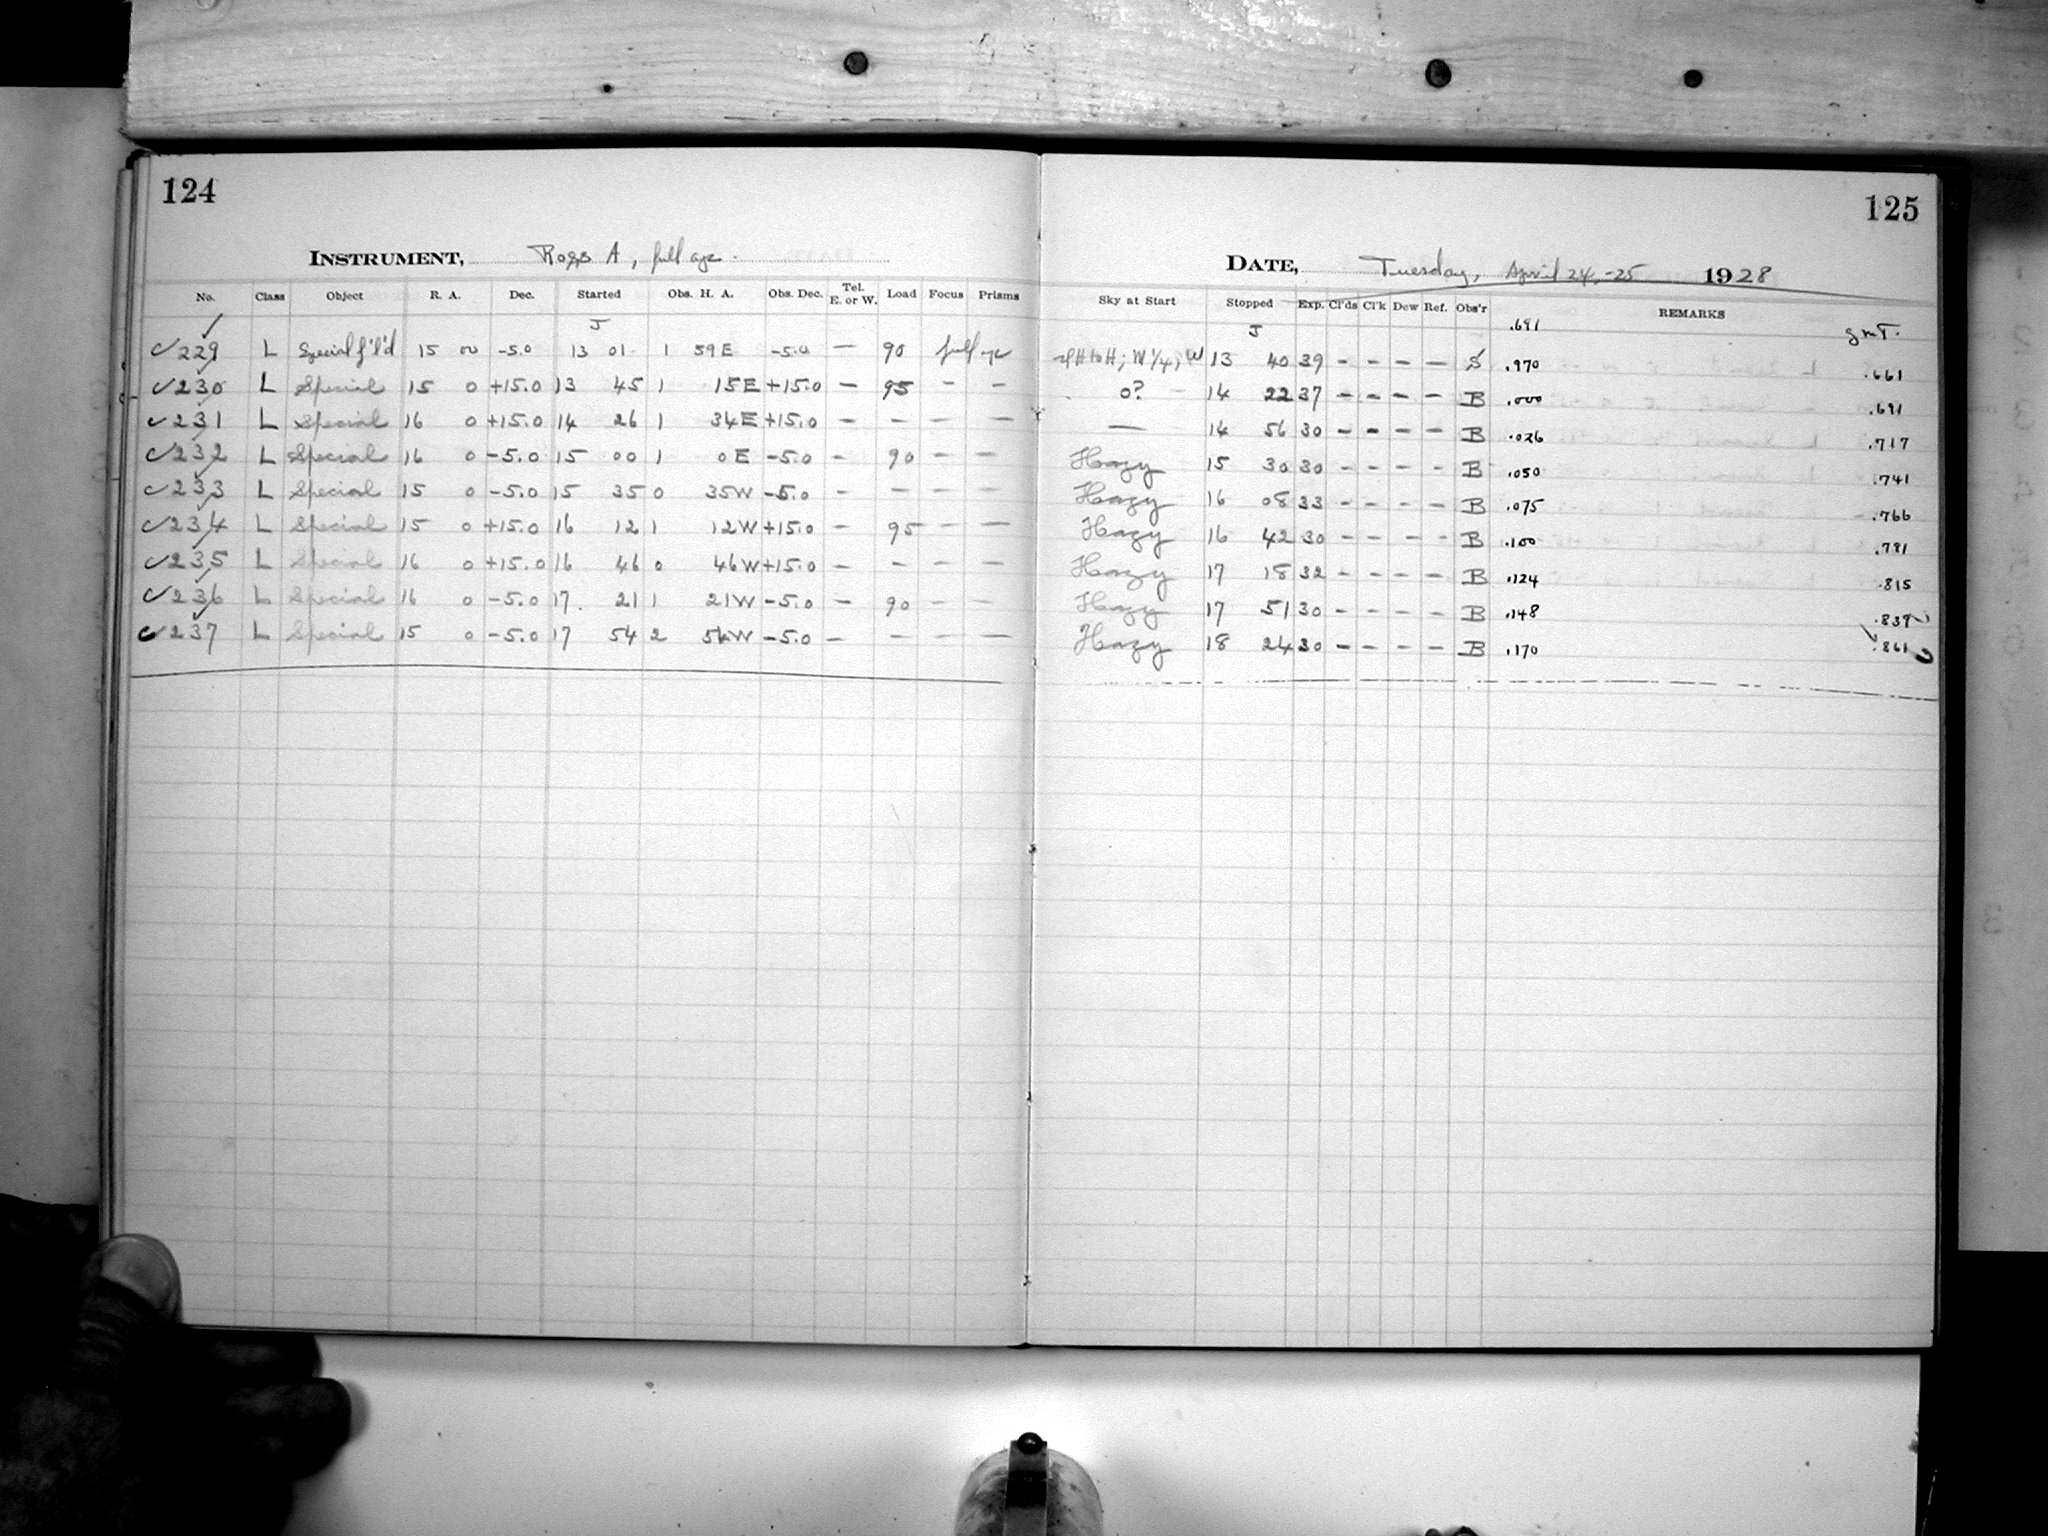 124
INSTRUMENT, Ross A, full ap.
No. Class Object R. A. Dec. Started Obs. H. A. Obs. Dec. Tel. E. or W. Load Focus Prisms
J
229 L Special f'l'd 15 00 -5.0 13 01 1 59 E -5.0 — 90 full ap
230 L Special 15 0 +15.0 13 45 1 15 E +15.0 — 95 — —
231 L Special 16 0 +15.0 14 26 1 34 E +15.0 — — — —
232 L Special 16 0 -5.0 15 00 1 0 E -5.0 — 90 — —
233 L Special 15 0 -5.0 15 35 0 35 W -5.0 — — — —
234 L Special 15 0 +15.0 16 12 1 12 W +15.0 — 95 — —
235 L Special 16 0 +15.0 16 46 0 46 W +15.0 — — — —
236 L Special 16 0 -5.0 17 21 1 21 W -5.0 — 90 — —
237 L Special 15 0 -5.0 17 54 2 54 W -5.0 — — — —
125
DATE, Tuesday, April 24-25 1928
Sky at Start Stopped Exp. Cl'ds Cl'k Dew Ref. Obs'r REMARKS
J .691 GMT.
W 1/4; W 13 40 39 — — — — S .970 .661
0? 14 22 37 — — — — B .000 .691
— 14 56 30 — — — — B .026 .717
Hazy 15 30 30 — — — — B .050 .741
Hazy 16 08 33 — — — — B .075 .766
Hazy 16 42 30 — — — — B .100 .791
Hazy 17 18 32 — — — — B .124 .815
Hazy 17 51 30 — — — — B .148 .839
Hazy 18 24 30 — — — — B .170 .861